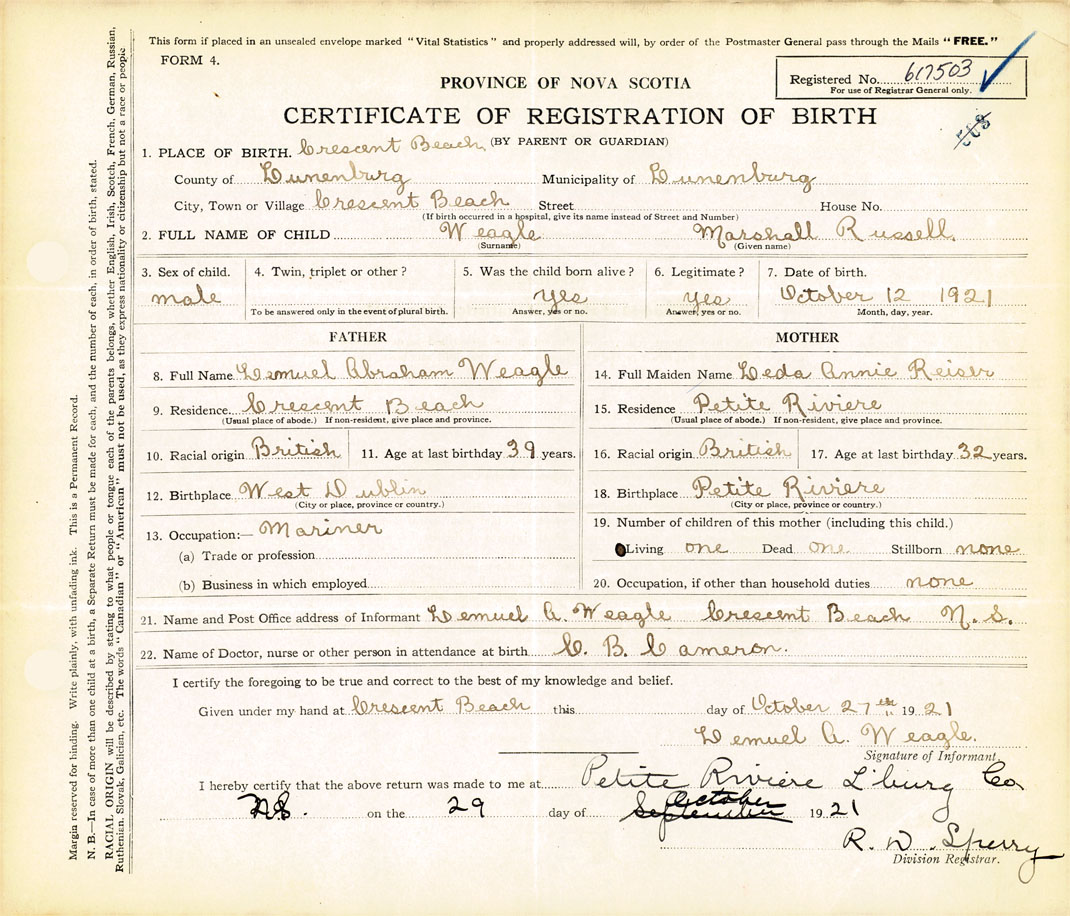 This form if placed in an unsealed envelope marked "Vital Statistics" and properly addressed will, by order of the Postmaster General pass through the Mails "FREE."
FORM 4.
Registered No. 617503
For use of Registrar General only.
PROVINCE OF NOVA SCOTIA
CERTIFICATE OF REGISTRATION OF BIRTH
(BY PARENT OR GUARDIAN)
1. PLACE OF BIRTH. Crescent Beach
County of Lunenburg Municipality of Lunenburg
City, Town or Village Crescent Beach Street House No.
(If birth occurred in a hospital, give its name instead of Street and Number)
2. FULL NAME OF CHILD Weagle Marshall Russell
(Surname) (Given name)
3. Sex of child. 4. Twin, triplet or other? 5. Was the child born alive? 6. Legitimate? 7. Date of birth.
male yes yes October 12 1921
To be answered only in the event of plural birth. Answer, yes or no. Answer, yes or no. Month, day, year.
FATHER
8. Full Name Lemuel Abraham Weagle
9. Residence. Crescent Beach
(Usual place of abode.) If non-resident, give place and province.
10. Racial origin British 11. Age at last birthday 39 years.
12. Birthplace West Dublin
(City or place, province or country.)
13. Occupation:— Mariner
(a) Trade or profession
(b) Business in which employed
MOTHER
14. Full Maiden Name Leda Annie Reiser
15. Residence Petite Riviere
(Usual place of abode.) If non-resident, give place and province.
16. Racial origin British 17. Age at last birthday 32 years.
18. Birthplace Petite Riviere
(City or place, province or country.)
19. Number of children of this mother (including this child.)
Living one Dead one Stillborn none
20. Occupation, if other than household duties none
21. Name and Post Office address of Informant Lemuel A. Weagle Crescent Beach N.S.
22. Name of Doctor, nurse or other person in attendance at birth C. B. Cameron.
I certify the foregoing to be true and correct to the best of my knowledge and belief.
Given under my hand at Crescent Beach this day of October 27th 1921
Lemuel A. Weagle.
Signature of Informant.
I hereby certify that the above return was made to me at Petite Riviere L'burg Co
N.S. on the 29 day of September October 1921
R. D. Sperry
Division Registrar.
Margin reserved for binding. Write plainly, with unfading ink. This is a Permanent Record.
N. B.—In case of more than one child at a birth, a Separate Return must be made for each, and the number of each, in order of birth, stated.
RACIAL ORIGIN will be described by stating to what people or tongue each of the parents belongs, whether English, Irish, Scotch, French, German, Russian,
Ruthenian, Slovak, Galician, etc. The words "Canadian" or "American" must not be used, as they express nationality or citizenship but not a race or people